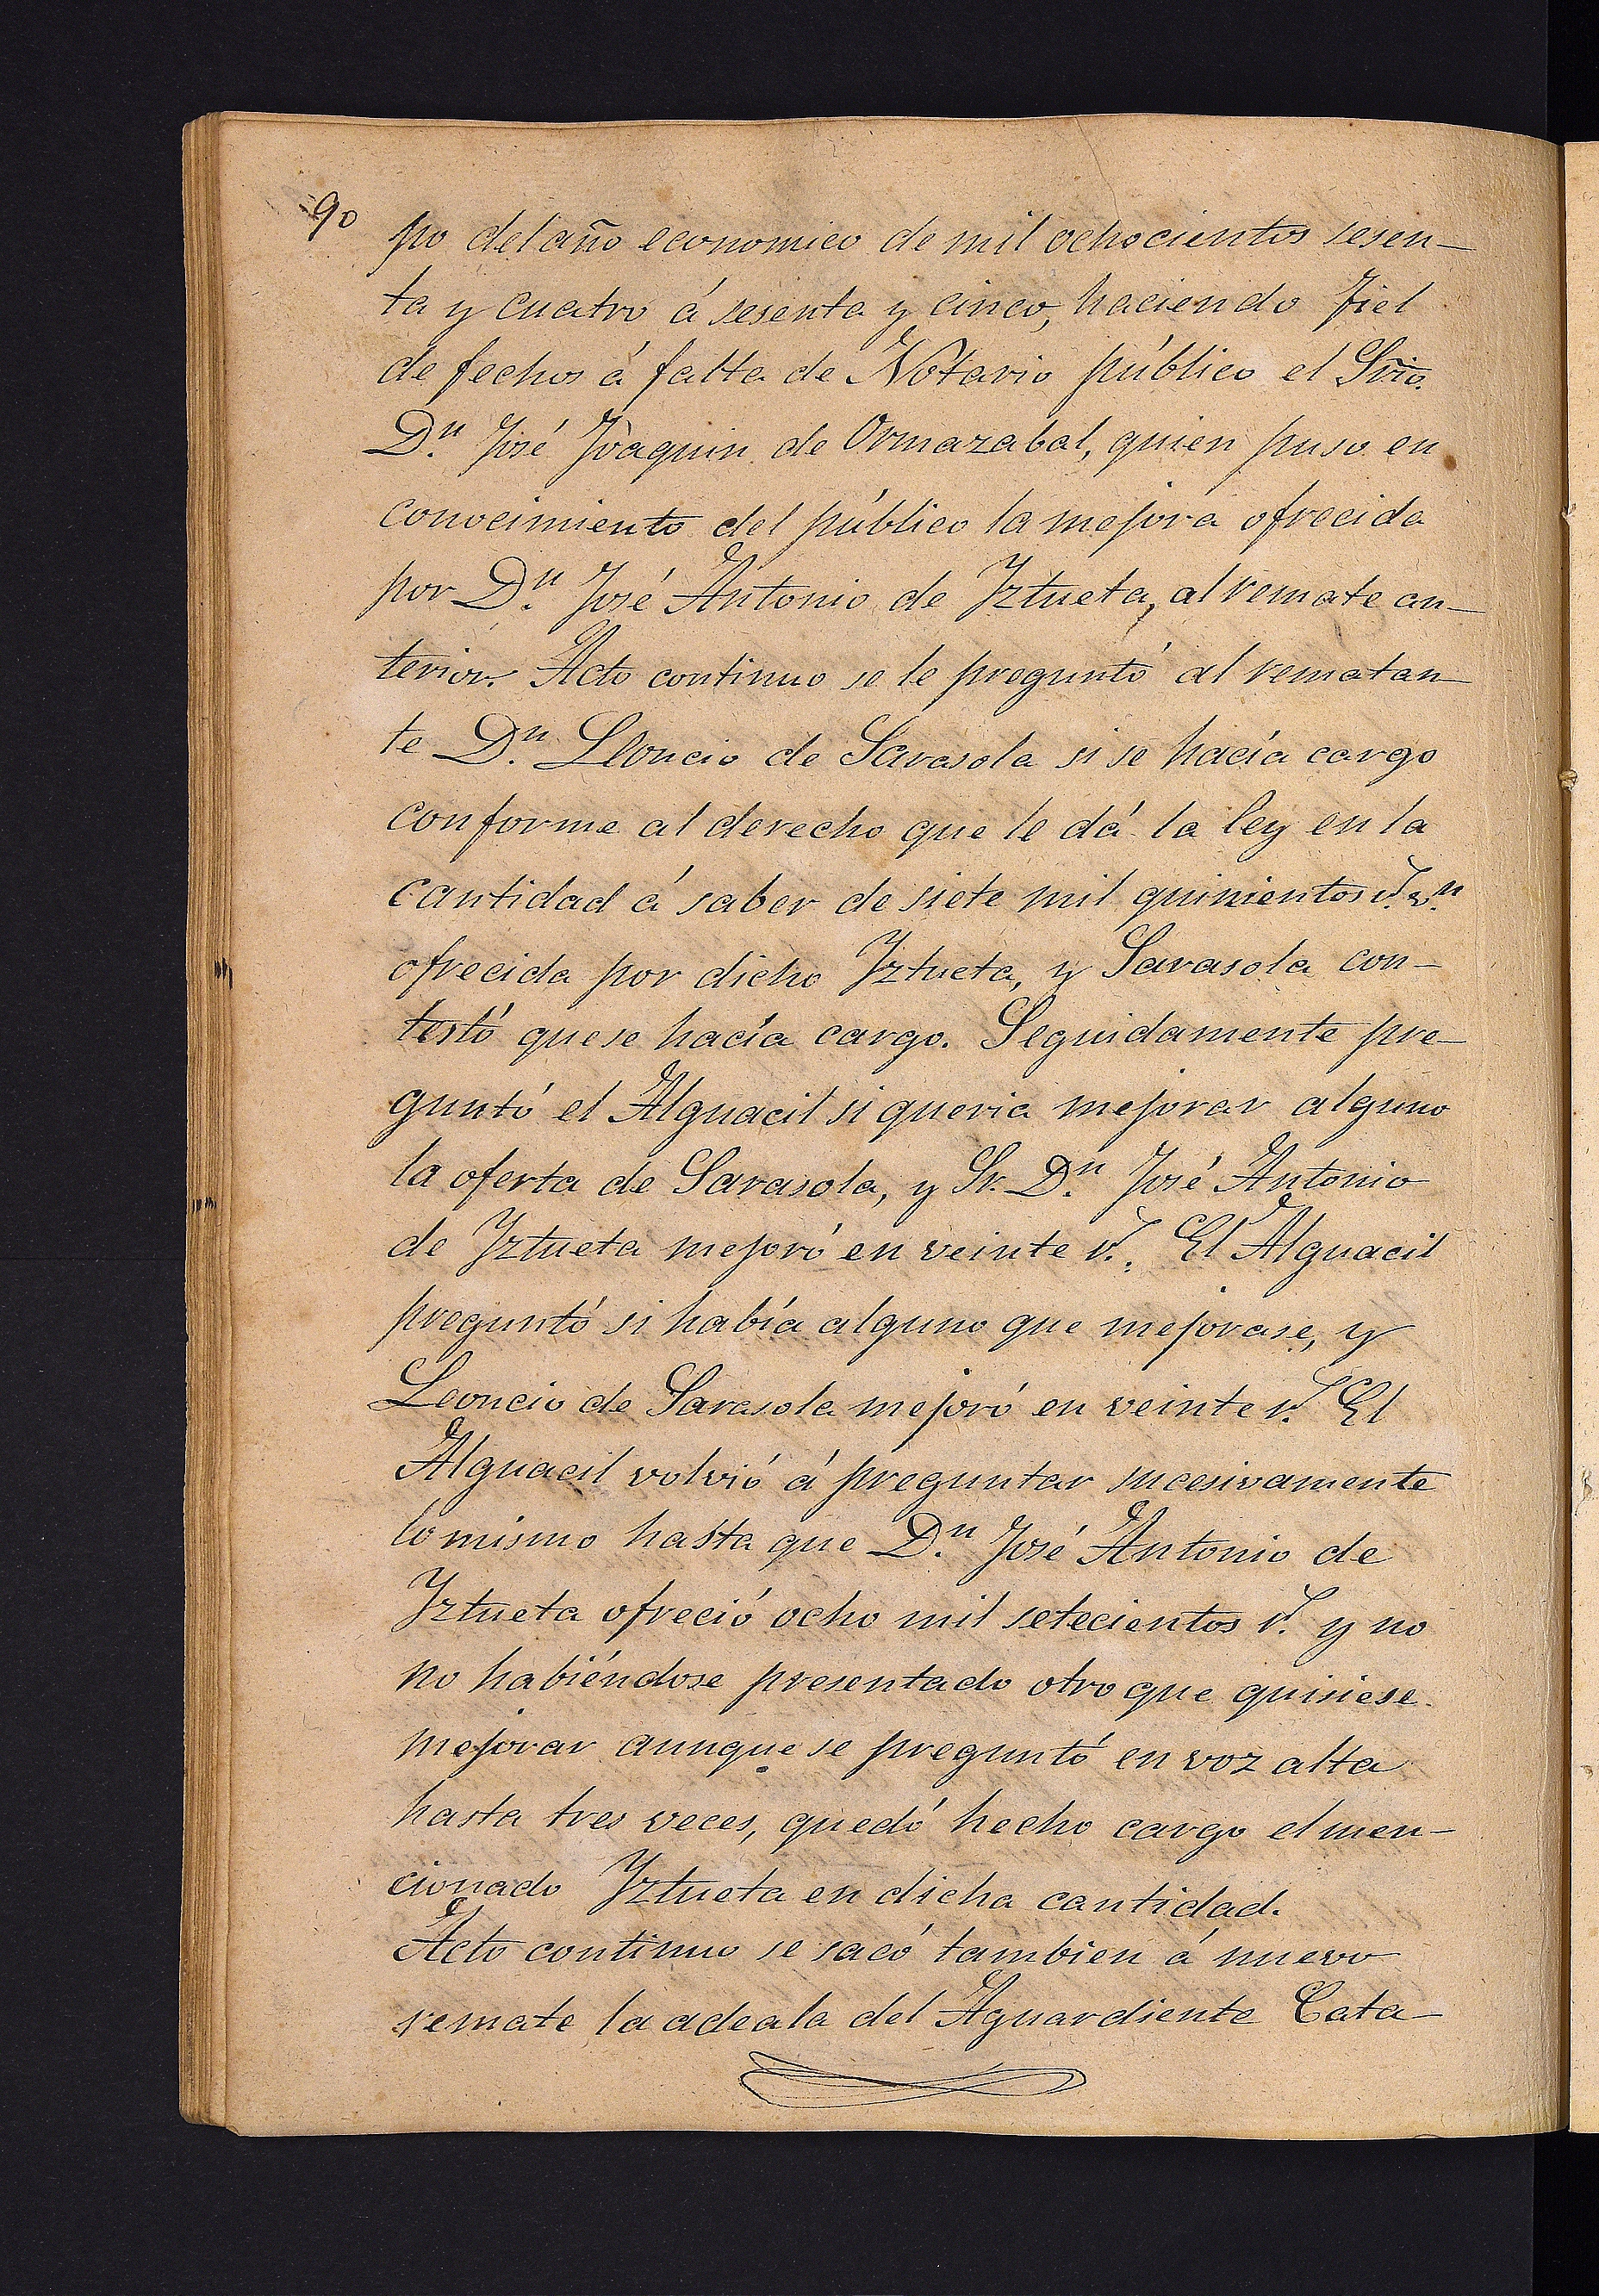 90
po del año economico de mil ochocientos sesen-
ta y cuatro á sesenta y cinco, haciendo Fiel
de fechos á falta de Notario público el Srio.
D.n José Joaquin de Ormazabal, quien puso en
conocimiento del público la mejora ofrecida
por D.n José Antonio de Iztueta, al remate an-
terior. Acto continuo se le preguntó al rematan-
te D.n Lloncio de Sarasola si se hacía cargo
conforme al derecho que le dá la ley en la
cantidad á saber de siete mil quinientos r.s v.n
ofrecida por dicho Iztueta, y Sarasola con-
testó que se hacía cargo. Seguidamente pre-
guntó el Alguacil si queria mejorar alguno
la oferta de Sarasola, y Sr. D.n José Antonio
de Iztueta mejoró en veinte r.s. El Alguacil
preguntó si había alguno que mejorase, y
Leoncio de Sarasola mejoró en veinte r.s El
Alguacil volvió á preguntar sucesivamente
lo mismo hasta que D.n José Antonio de
Iztueta ofreció ocho mil setecientos r.s y no
no habiéndose presentado otro que quisiese
mejorar aunque se preguntó en voz alta
hasta tres veces, quedó hecho cargo el men-
cionado Iztueta en dicha cantidad.
Acto continuo se sacó tambien á nuevo
remate la adeala del Aguardiente Cata-